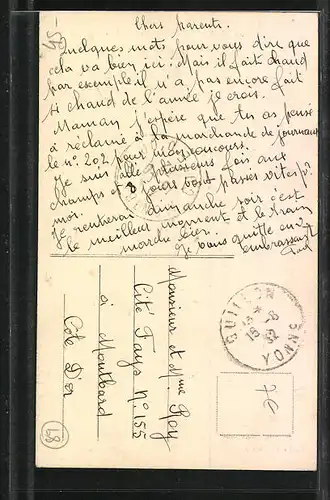 Chers Parents.
Quelques mots pour vous dire que
cela va bien ici. Mais il fait chaud
par exemple il n'a pas encore fait
si chaud de l'année je crois.
Maman j'espère que tu as pensé
à réclamé à la marchande de journaux
le n° 202 pour mon concours.
Je suis allé plusieurs fois aux
champs et 8 jours sont passés vite
moi.
Je rentrerai dimanche soir c'est
le meilleur moment et le train
marche bien.
Je vous quitte en
embrassant
Monsieur et Mme Roy
Cité Fays N° 155
à Montbard
Côte D'or
GUILLON
YONNE
15-8
32
7E
L8